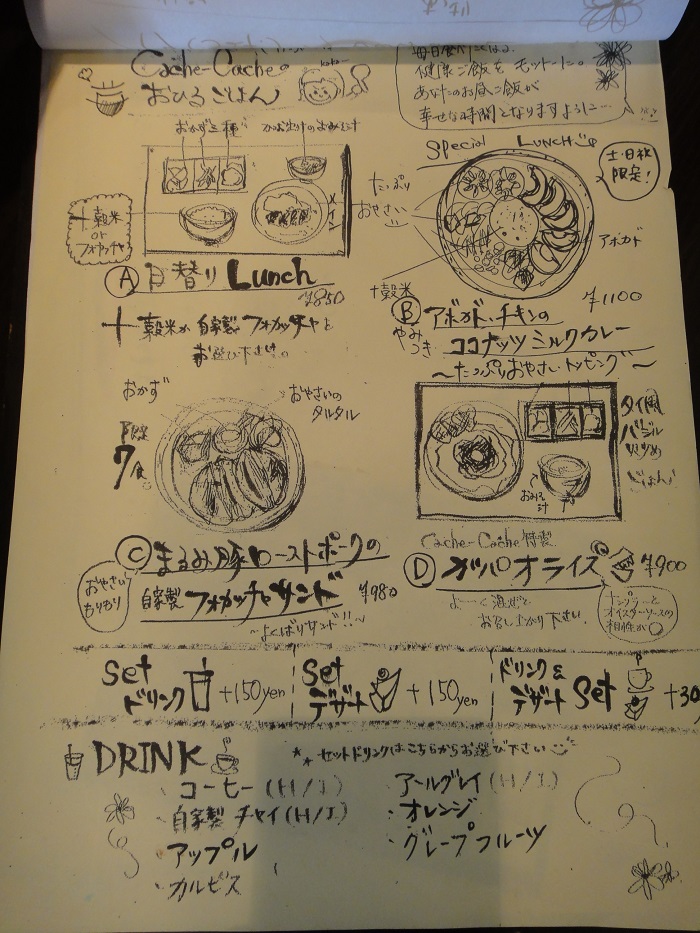 Cache-Cacheの
おひるごはん
毎日食べたくなる、
健康ご飯をモットーに。
あなたのお昼ご飯が
幸せな時間となりますように…
おかず三種
十穀米
or
フォカッチャ
メイン
Ⓐ日替りLunch
¥850
十穀米か自家製フォカッチャを
お選び下さい。
Special LUNCH
土・日・祝
限定!
たっぷり
おやさい
アボカド
十穀米
¥1100
Ⓑアボカド・チキンの
やみつき
ココナッツミルクカレー
〜たっぷりおやさいトッピング〜
おかず
おやさいの
タルタル
限定
7食
Ⓒまるみ豚ローストポークの
自家製フォカッチャサンド
¥980
おやさい
もりもり
〜よくばりサンド!!〜
タイ風
バジル
炒め
ごはん
おみそ
汁
Cache-Cache特製
Ⓓガパオライス
¥900
よーく混ぜて
お召し上がり下さい
ナンプラーと
オイスターソースの
相性が○
Set
ドリンク
+150yen
Set
デザート
+150yen
ドリンク&
デザートSet
+30
DRINK
セットドリンクはこちらからお選び下さい
・コーヒー(H/I)
・自家製チャイ(H/I)
・アップル
・カルピス
・アールグレイ(H/I)
・オレンジ
・グレープフルーツ